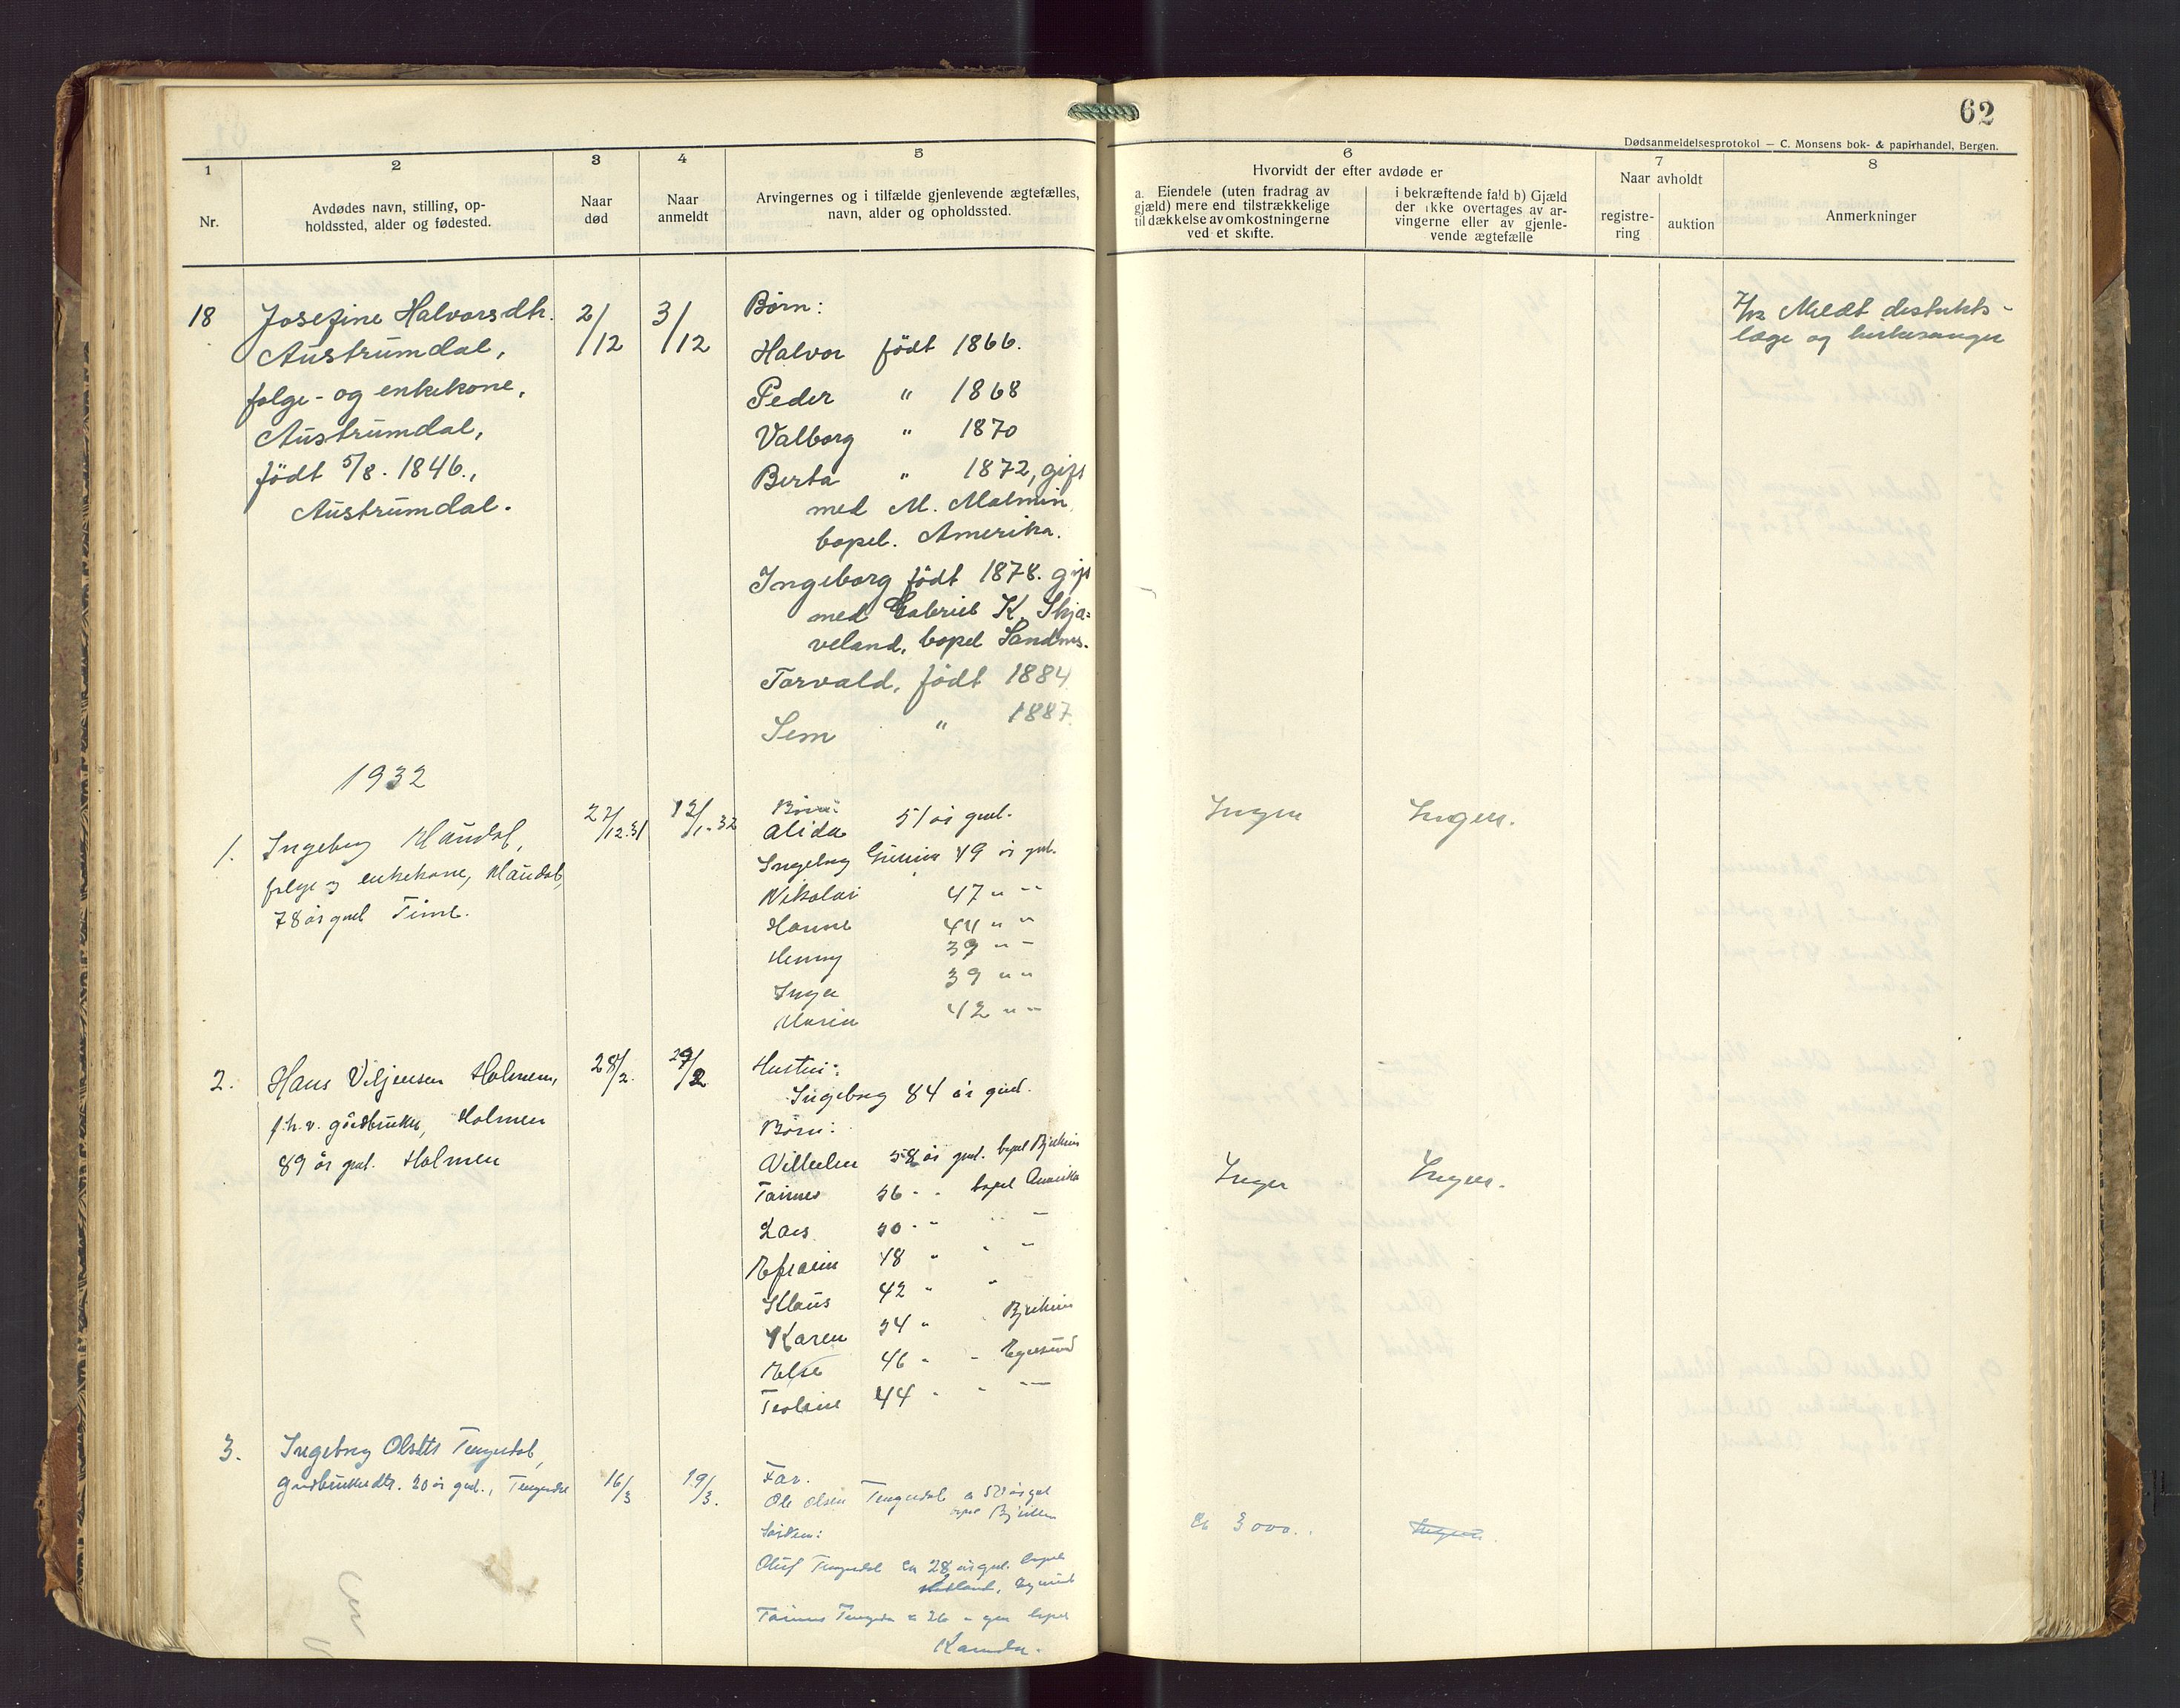 62
Dødsanmeldelsesprotokol — C. Monsens bok- & papirhandel, Bergen.
1
2
3
4
5
6
7
8
Nr.
Avdødes navn, stilling, op-
holdssted, alder og fødested.
Naar
død
Naar
anmeldt
Arvingernes og i tilfælde gjenlevende ægtefælles,
navn, alder og opholdssted.
Hvorvidt der efter avdøde er
a. Eiendele (uten fradrag av
gjæld) mere end tilstrækkelige
til dækkelse av omkostningerne
ved et skifte.
i bekræftende fald b) Gjæld
der ikke overtages av ar-
vingerne eller av gjenle-
vende ægtefælle
Naar avholdt
registre-
ring
auktion
Anmerkninger
18
Josefine Halvorsdtr.
Austrumdal,
folge- og enkekone,
Austrumdal,
født 5/8. 1846.,
Austrumdal.
2/12
3/12
Børn:
Halvor født 1866.
Peder " 1868
Valborg " 1870
Berta " 1872, gift
med M. Malmin
bopel. Amerika.
Ingeborg født 1878. gift
med Gabriel K. Skja-
veland, bopel Sandnes.
Torvald, født 1884.
Sem " 1887.
Meldt distrikts-
læge og kirkesanger
1932
1.
Ingeborg Maudal,
folge og enkekone, Maudal,
78 år gml Time.
27/12.31
12/1-32
Børn:
Alida 51 år gml.
Ingeborg 49 år gml.
Nikolai 47 " "
Hanne 44 " "
Henny 39 " "
Inga 39 " "
Maria 42 " "
Ingen
Ingen.
2.
Hans Viljensen Holmen,
f.h.v. gårdbruker, Holmen
89 år gml. Holmen
28/2.
29/2
Hustru:
Ingeborg 84 år gml.
Børn:
Villulm 58 år gml. bopel Bjerkreim
Tønnes 56 - - bopel Amerika
Lars 50 - -
Efraim 48 - - -
Klaus 42 - -
Karen 54 - - Bjerkreim
Else 46 - - Egersund
Teoline 44 - - -
Ingen
Ingen.
3.
Ingeborg Olsdtr Tengesdal,
gårdbrukerdtr. 20 år gml., Tengesdal
16/3
19/3.
Far.
Ole Olsen Tengesdal 50 år gml
bopel Bjerkreim
Søsken:
Oluf Tengesdal ca 28 år gml. bopel
Egersund
Tønnes Tengesdal ca 26 - gml bopel
Kanada.
Ca 3000.
Ingen